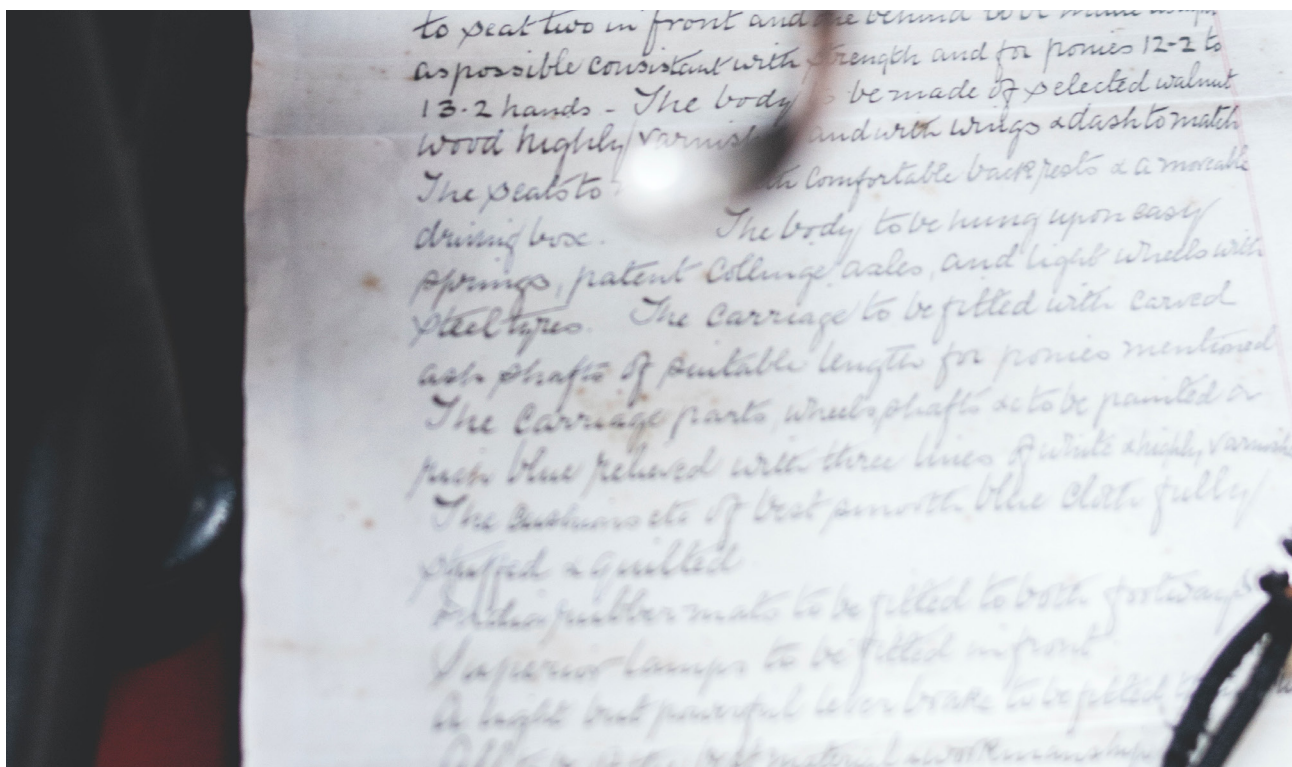 to seat two in front and behind to be made
as possible consistant with strength and for ponies 12-2 to
13.2 hands - The body be made of selected walnut
wood highly varnish and with wings & dash to match
The seats to comfortable back rests & a moveable
driving box. The body to be hung upon easy
springs, patent Collinge axles, and light wheels with
steel tyres. The Carriage to be fitted with carved
ash shafts of suitable length for ponies mentioned
The Carriage parts, wheels, shafts &c to be painted
blue relieved with three lines of white & highly varnish
The cushions etc of best smooth blue cloth fully
stuffed & quilted
India rubber mats to be fitted to both footways
Superior lamps to be fitted in front
A light but powerful lever brake to be fitted
All to be best material & workmanship